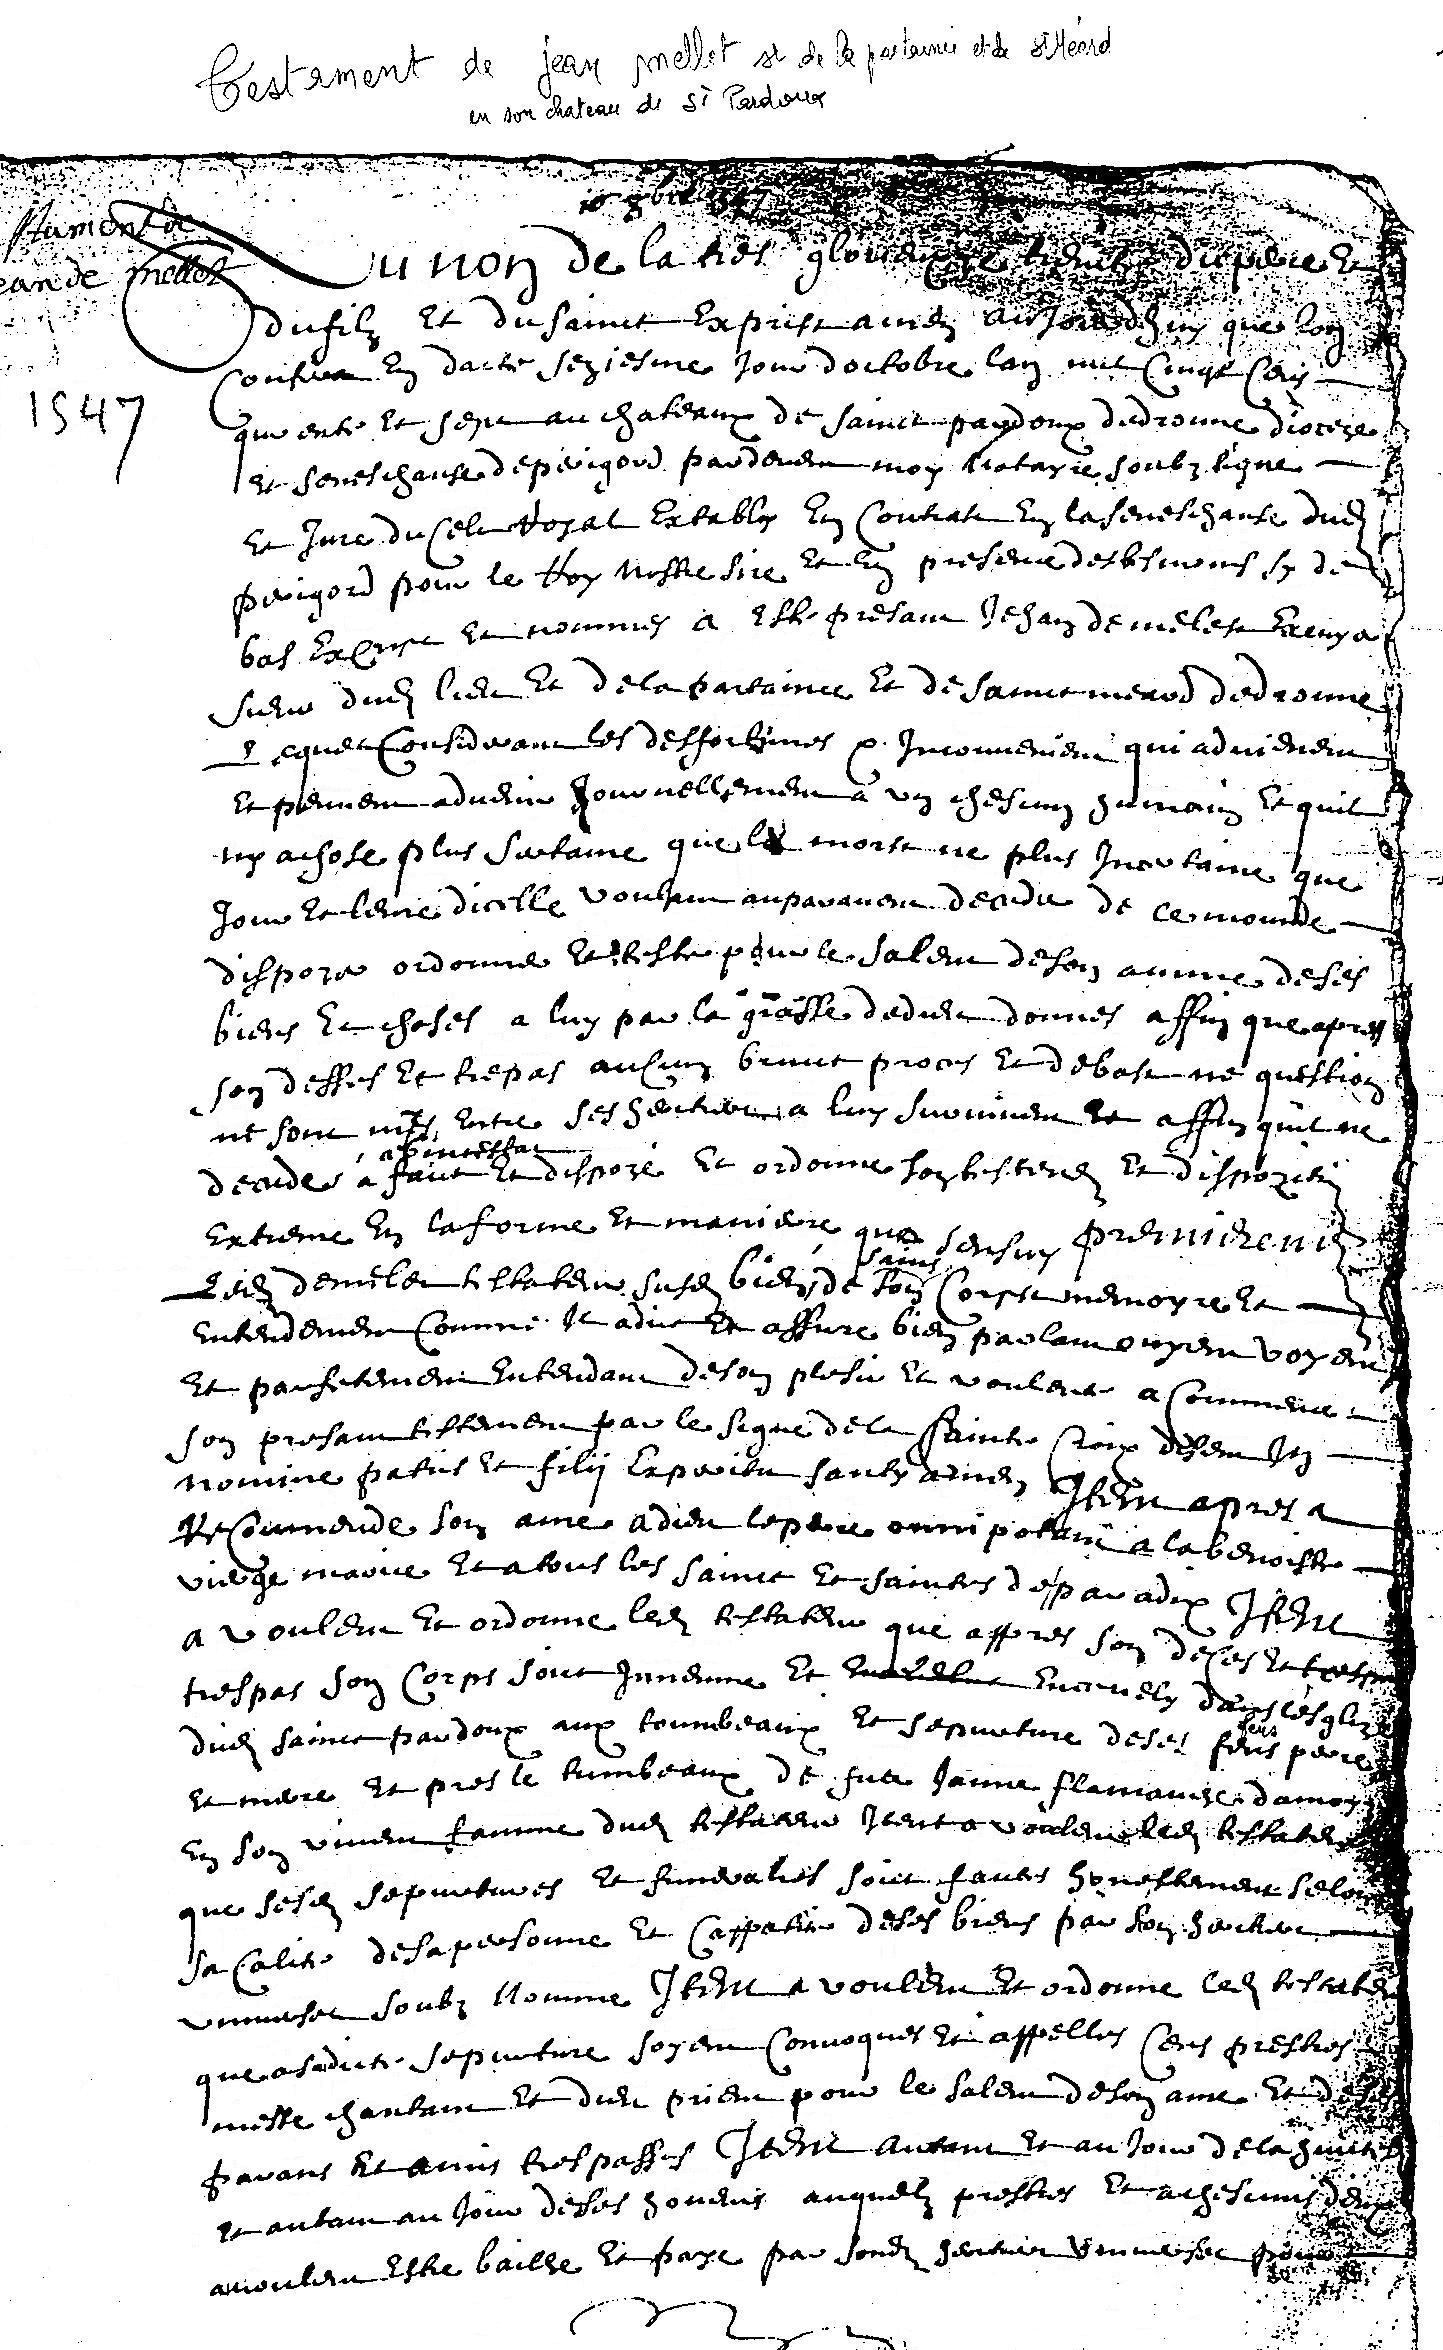 Testament de jean mellet sr de la partainie et de St Méard
en son chateau de St Pardoux
16 8bre 1547
Testament de
Jean de mellet
1547
Au non de la tres glorieuze trinite du pere et
du filz et du sainct exprist amen aujourdhuy que lon
conte en dacte seziesme jour doctobre lan mil cinqt cens
quarente et sept au chateaux de sainct pardoux dedronne diocese
et seneschause de perigord par devem moy notayre soubz signe
et jure du celu royal extably en contrat en la seneschause dud
perigord pour le roy nostre sire et en presence des tesmoins sy de
bas excript et nommes a este presam Jehan de melet excuyer
sieur dud lieu et de la partainie et de sainct meard dedronne
Lequel considerant les desfortunes & inconvenien qui advienent
et peuvent advenir journellement a un chescung humain et quil
ny a chose plus sertaine que la mort ne plus incertaine que
jour et leure dicelle voulant auparavent deceder de ce monde
dispozer ordonner et tester pour le saleu de son amme de ses
biens et choses a luy par la grasse de dieu donnes affin que apres
son desses et trepas aulcung bruict proces et debat ne question
ne soit meus entre ses heritiers a luy survivem et affin quil ne
decede abintestat a faict et dispozé et ordonne son testemen et dispozition
extreme en la forme et maniere que sensuy premieremen
Led de mellet testateur susd bien sains de son corps memoyre et
entendement comme il a dict et assure bien parlant ouyem voyem
et parfetement entendant de son plesir et voulente a commence
son presant testement par le signe de la sainte croix disem In
nomine patris et filii experitu santy amen Item apres a
recommende son ame a dieu le pere omnipotant a la benoiste
vierge marie et a tous les sainct et saintes de paradix Item
a voulem et ordonne led testateur que appres son deces et trespas
trespas son corps soict innumme et ensevely dans lesglize
dud sainct pardoux aux toumbeaux et sepurture de ses feus pere
et mere et pres le tumbeaux de fue Janne flamange damoy
en son vivem famme dud testateur Item a voulem led testateur
que sesd sepurtures et funeralies soict faictes honestement selon
sa calite de sa personne et cappatite de ses biens par son heritier
universel soubz nomme Item a voulem et ordonne led testateur
que a sadicte sepurture soyem convoques et appelles cens prestres
messe chantam et dieu priem pour le saleu de son ame et de ses
parans et amis trespasses Item autant et au jour de la huictene
et autam au jour de ses honeurs auquelz prestres et a chescuns deux
a voulem estre baille et paye par sond heritier universel pour